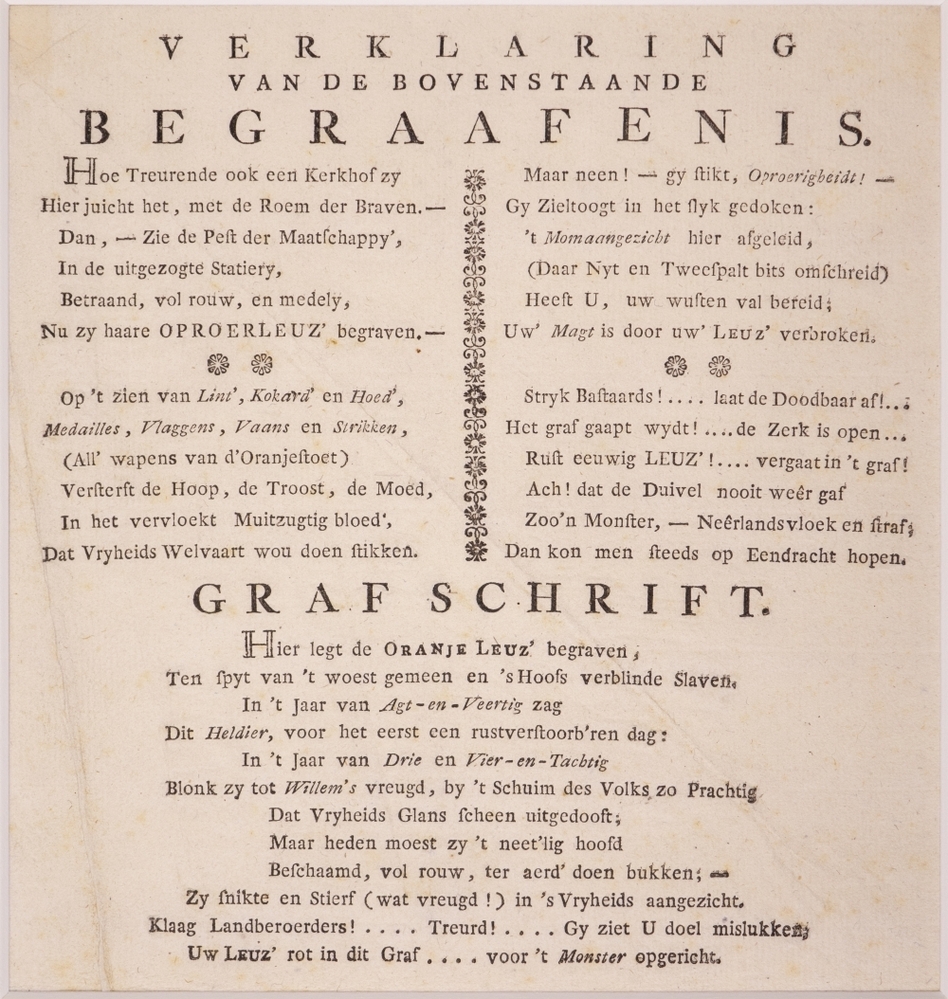 VERKLARING
VAN DE BOVENSTAANDE
BEGRAAFENIS.
Hoe Treurende ook een Kerkhof zy
Hier juicht het, met de Roem der Braven.—
Dan, — Zie de Peſt der Maatſchappy',
In de uitgezogte Statiery,
Betraand, vol rouw, en medely,
Nu zy haare OPROERLEUZ' begraven.—
Op 't zien van Lint', Kokard' en Hoed',
Medailles, Vlaggens, Vaans en Strikken,
(All' wapens van d'Oranjeſtoet)
Verſterft de Hoop, de Troost, de Moed,
In het vervloekt Muitzugtig bloed',
Dat Vryheids Welvaart wou doen ſtikken.
Maar neen! — gy ſtikt, Oproerigheidt! —
Gy Zieltoogt in het ſlyk gedoken:
't Momaangezicht hier afgeleid,
(Daar Nyt en Tweeſpalt bits omſchreid)
Heeft U, uw wuſten val bereid;
Uw' Magt is door uw' LEUZ' verbroken.
Stryk Baſtaards! .... laat de Doodbaar af!..;
Het graf gaapt wydt! .... de Zerk is open...
Ruſt eeuwig LEUZ'!.... vergaat in 't graf!
Ach! dat de Duivel nooit weêr gaf
Zoo'n Monſter, — Neêrlands vloek en ſtraf;
Dan kon men ſteeds op Eendracht hopen.
GRAFSCHRIFT.
Hier legt de ORANJE LEUZ' begraven,
Ten ſpyt van 't woest gemeen en 's Hoofs verblinde Slaven.
In 't Jaar van Agt-en-Veertig zag
Dit Heldier, voor het eerst een rustverſtoorb'ren dag:
In 't Jaar van Drie en Vier-en-Tachtig
Blonk zy tot Willem's vreugd, by 't Schuim des Volks zo Prachtig
Dat Vryheids Glans ſcheen uitgedooft;
Maar heden moest zy 't neet'lig hoofd
Beſchaamd, vol rouw, ter aerd' doen bukken; —
Zy ſnikte en Stierf (wat vreugd!) in 's Vryheids aangezicht.
Klaag Landberoerders! .... Treurd! .... Gy ziet U doel mislukken;
Uw LEUZ' rot in dit Graf .... voor 't Monster opgericht.